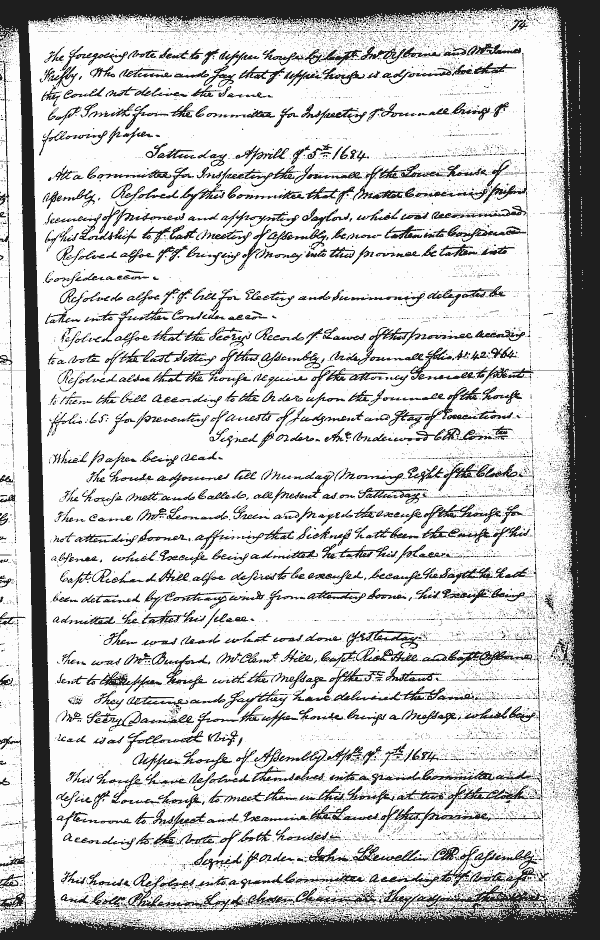 74
The foregoing vote sent to ye upper house by Capt. Jno. Osborne and Mr. James
Keisby, Who returne and Say that ye upper house is adjourned soe that
they could not deliver the Same.
Capt. Smith from the Committee for Inspecting ye Journall brings ye
following paper.
Satturday Aprill ye 5th 1684.
Att a Committee for Inspecting the Journall of the Lower house of
Assembly. Resolved by this Committee that ye Matter Concerning prisons
Secureing of prisoners and appoynting Jaylors, which was recommended
by his Lordship to ye Last Meeting of Assembly, be now taken into Consideracon
Resolved alsoe yt ye bringing of Money into this province be taken into
Consideracon.
Resolved alsoe yt ye bill for Electing and Summoning delegates be
taken into further Consideracon.
Resolved alsoe that the Secrys Record ye Lawes of this province according
to a Vote of the Last Sitting of this Assembly, vide Journall folio 41. 42 & 64.
Resolved alsoe that the house require of the Attorney Generall to psent
to them the bill According to the Order upon the Journall of the house
ffolio 65. for preventing of Arrests of Judgment and Stay of Executions.
Signed p Order. An. Underwood Clk Comtee
Which paper being read.
The house adjournes till Munday Morning Eight of the Clock.
The house mett and Called, all present as on Satturday.
Then came Mr. Leonard Green and prayed the excuse of the house for
not attending sooner, affirming that Sickness hath been the Cause of his
absence, which Excuse being admitted he takes his place.
Capt. Richard Hill alsoe desires to be excused, because he Sayth he hath
been detained by Contrary winds from attending sooner, his Excuse being
admitted he takes his place.
Then was read what was done yesterday.
Then was Mr. Burford, Mr. Clemt. Hill, Capt. Richd Hill and Capt. Osborne
sent to the upper house with the Message of the 5th Instant.
They returne and Say they have delivered the Same.
Mr. Secry Darnall from the upper house brings a Message, which being
read is as followeth Vizt,
Upper house of Assembly Apll. ye 7th 1684
This house have resolved themselves into a grand Committee and
desire ye Lower house, to meet them in this house, at two of the Clock
afternoone to Inspect and Examine the Lawes of this province,
According to the Vote of both houses.
Signed p Order. John Llewellin Clk of assembly
This house Resolves into a grand Committee according to ye Vote afsd.
and Collo. Philemon Loyd chosen Chairman. They adjourne